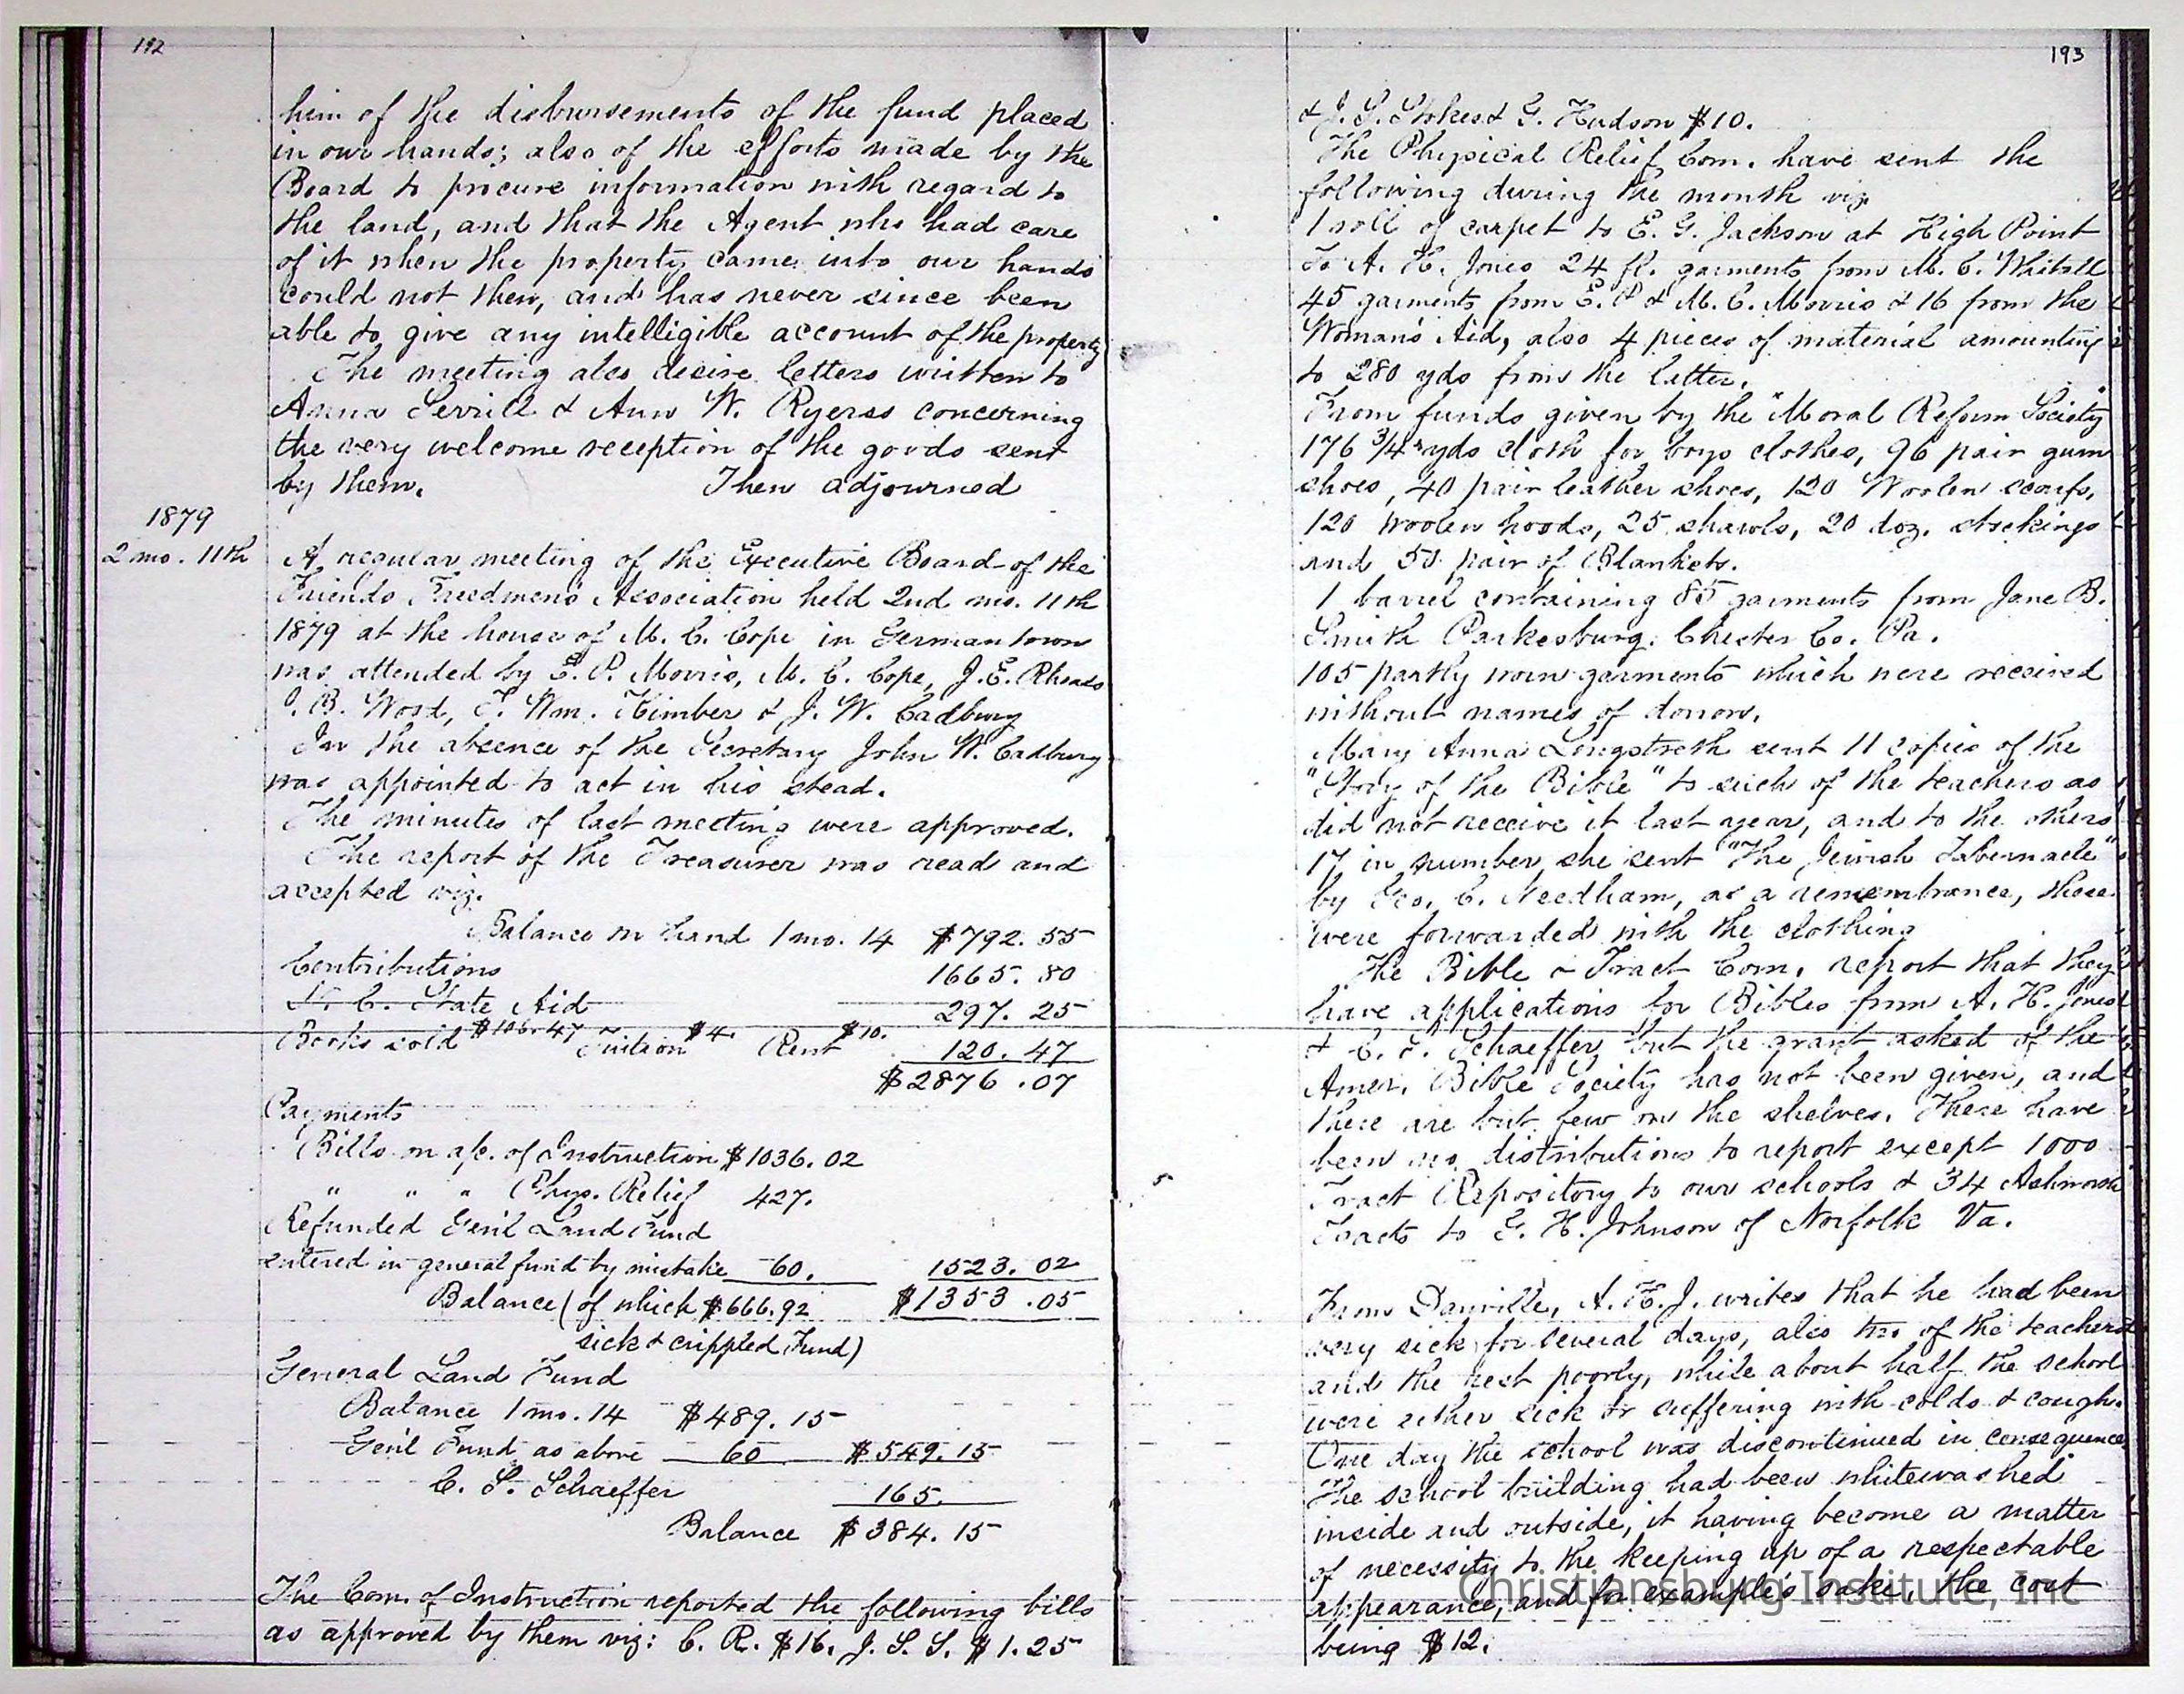 192
him of the disbursements of the fund placed
in our hands; also of the efforts made by the
Board to procure information with regard to
the land, and that the Agent who had care
of it when the property came into our hands
could not then, and has never since been
able to give any intelligible account of the property
The meeting also desire letters written to
Anna Serrill & Ann W. Ryerss concerning
the very welcome reception of the goods sent
by them. Then adjourned
1879
2 mo. 11th
A regular meeting of the Executive Board of the
Friends Freedmen's Association held 2nd mo. 11th
1879 at the house of M. C. Cope in Germantown
was attended by E. P. Morris, M. C. Cope, J. E. Rhoads
J. B. Wood, T. Wm. Kimber & J. W. Cadbury
In the absence of the Secretary John W. Cadbury
was appointed to act in his stead.
The minutes of last meeting were approved.
The report of the Treasurer was read and
accepted viz.
Balance on hand 1 mo. 14 $792.55
Contributions 1665.80
N. C. State Aid 297.25
Books sold $106.47 Tuition $4. Rent $10. 120.47
$2876.07
Payments
Bills on a/c. of Instruction $1036.02
" " " Phys. Relief 427.
Refunded Gen'l Land Fund
entered in general fund by mistake 60. 1523.02
Balance (of which $666.92 $1353.05
sick & crippled Fund)
General Land Fund
Balance 1 mo. 14 $489.15
Gen'l Fund as above 60 $549.15
C. S. Schaeffer 165.
Balance $384.15
The Com. of Instruction reported the following bills
as approved by them viz: C. R. $16. J. S. S. $1.25
193
& J. S. Stokes & G. Hudson $10.
The Physical Relief Com. have sent the
following during the month viz.
1 roll of carpet to E. G. Jackson at High Point
To A. H. Jones 24 fl. garments from M. C. Whitall
45 garments from E. P. & M. C. Morris & 16 from the
Woman's Aid, also 4 pieces of material amounting
to 280 yds from the latter.
From funds given by the "Moral Reform Society"
176 3/4 yds cloth for boys clothes, 96 pair gum
shoes, 40 pair leather shoes, 120 Woolen scarfs,
120 woolen hoods, 25 shawls, 20 doz. stockings
and 50 pair of Blankets.
1 barrel containing 85 garments from Jane B.
Smith Parkesburg. Chester Co. Pa.
105 partly worn garments which were received
without names of donors.
Mary Anna Longstreth sent 11 copies of the
"Story of the Bible" to such of the teachers as
did not receive it last year, and to the others
17 in number she sent "The Jewish Tabernacle"
by Geo. C. Needham, as a remembrance, these
were forwarded with the clothing
The Bible & Tract Com. report that they
have applications for Bibles from A. H. Jones
& C. S. Schaeffer, but the grant asked of the
Amer. Bible Society has not been given, and
there are but few on the shelves. There have
been no distributions to report except 1000
Tract Repository to our schools & 34 Ashworth
Tracts to G. H. Johnson of Norfolk Va.
From Danville, A. H. J. writes that he had been
very sick for several days, also two of the teachers
and the rest poorly, while about half the school
were either sick or suffering with colds & cough.
One day the school was discontinued in consequence
The school building had been whitewashed
inside and outside, it having become a matter
of necessity to the keeping up of a respectable
appearance, and for example's sake, the cost
being $12.
Christiansburg Institute, Inc